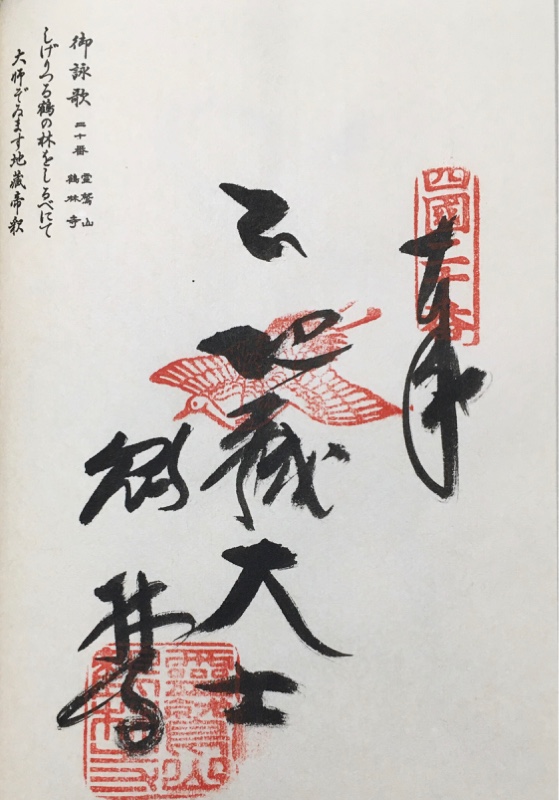 四國二十番
奉
地蔵大士
御詠歌 二十番 霊鷲山 鶴林寺
しげりつる鶴の林をしるべにて
大師ぞゐます地蔵帝釈